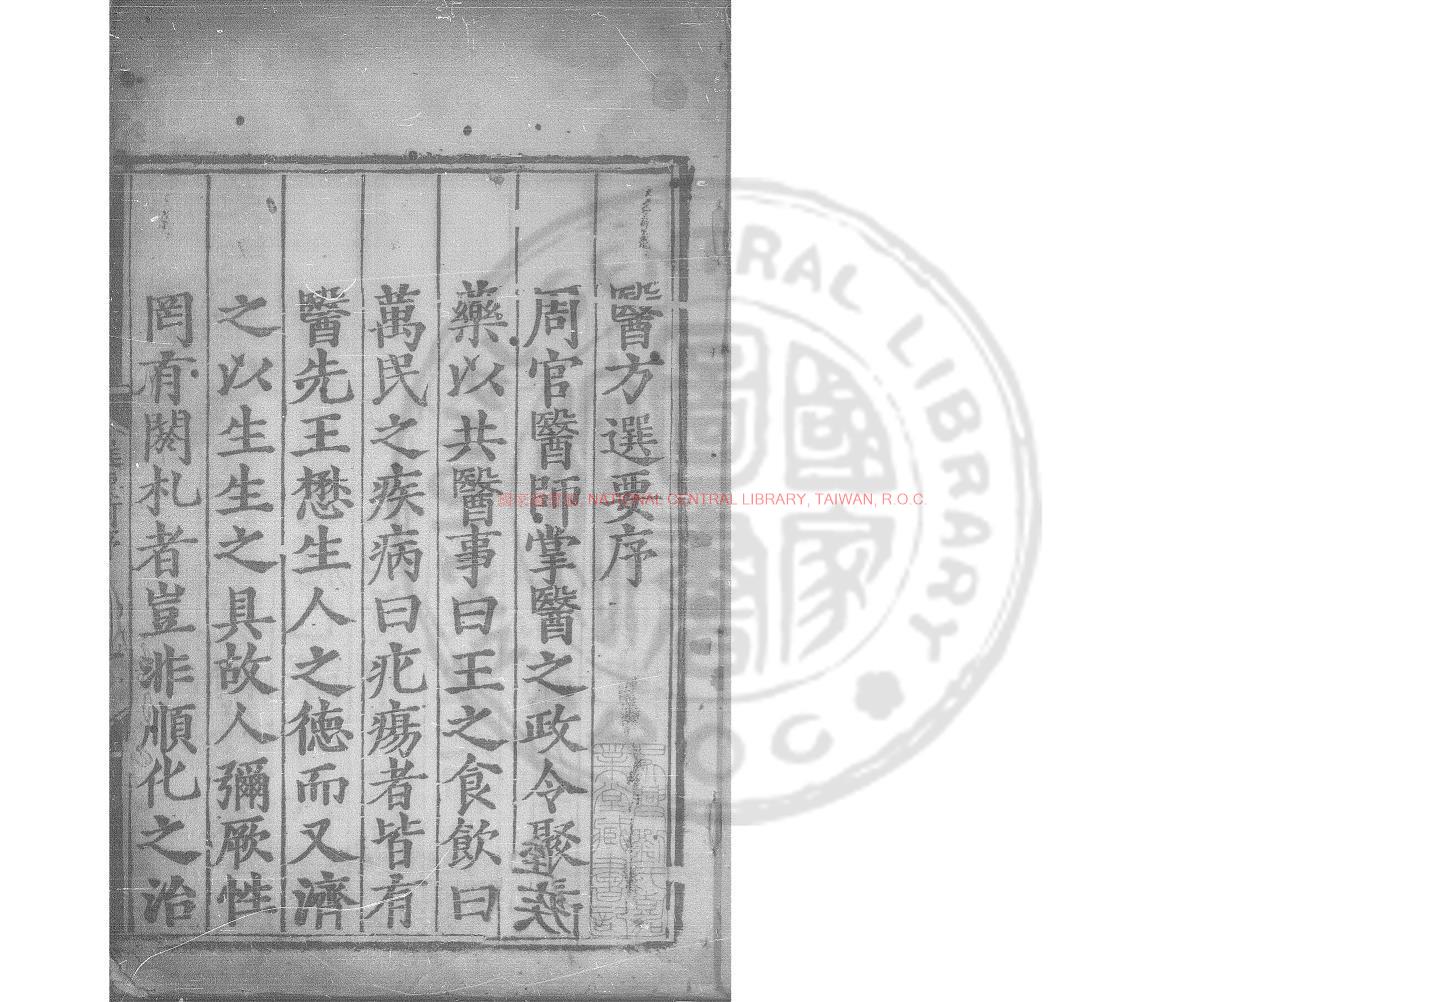 醫方選要序
周官醫師掌醫之政令聚
藥以共醫事曰王之食飲曰
萬民之疾病曰疕瘍者皆有
醫先王懋生人之德而又濟
之以生生之具故人彌厥性
罔有閼札者豈非順化之治
NATIONAL CENTRAL LIBRARY, TAIWAN, R.O.C.
CENTRAL LIBRARY
國家圖書館